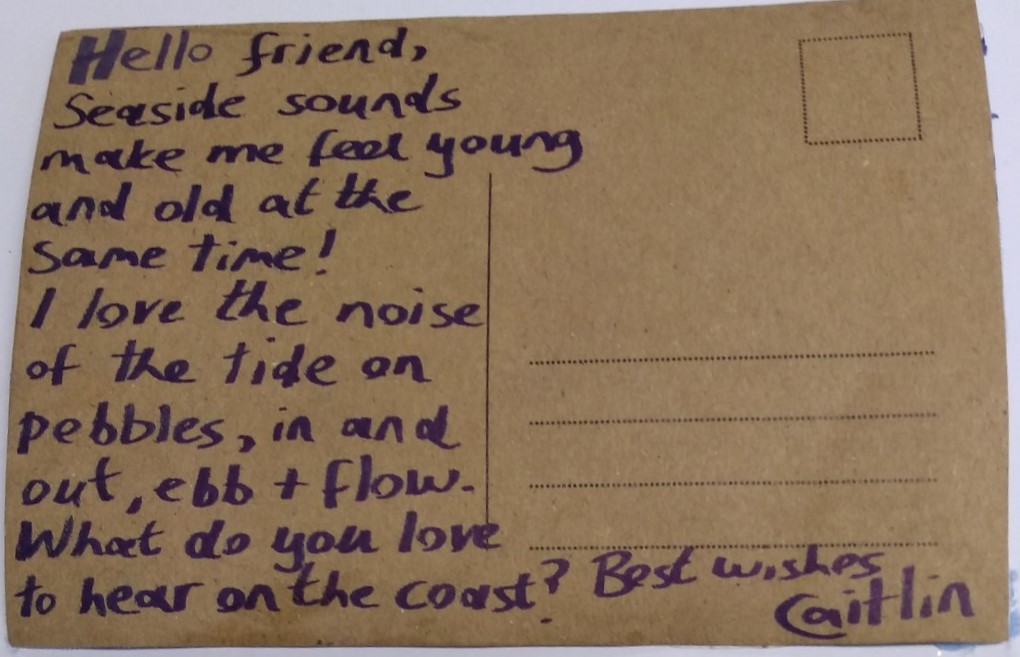 Hello friend,
Seaside sounds
make me feel young
and old at the
same time!
I love the noise
of the tide on
pebbles, in and
out, ebb + flow.
What do you love
to hear on the coast? Best wishes
Caitlin